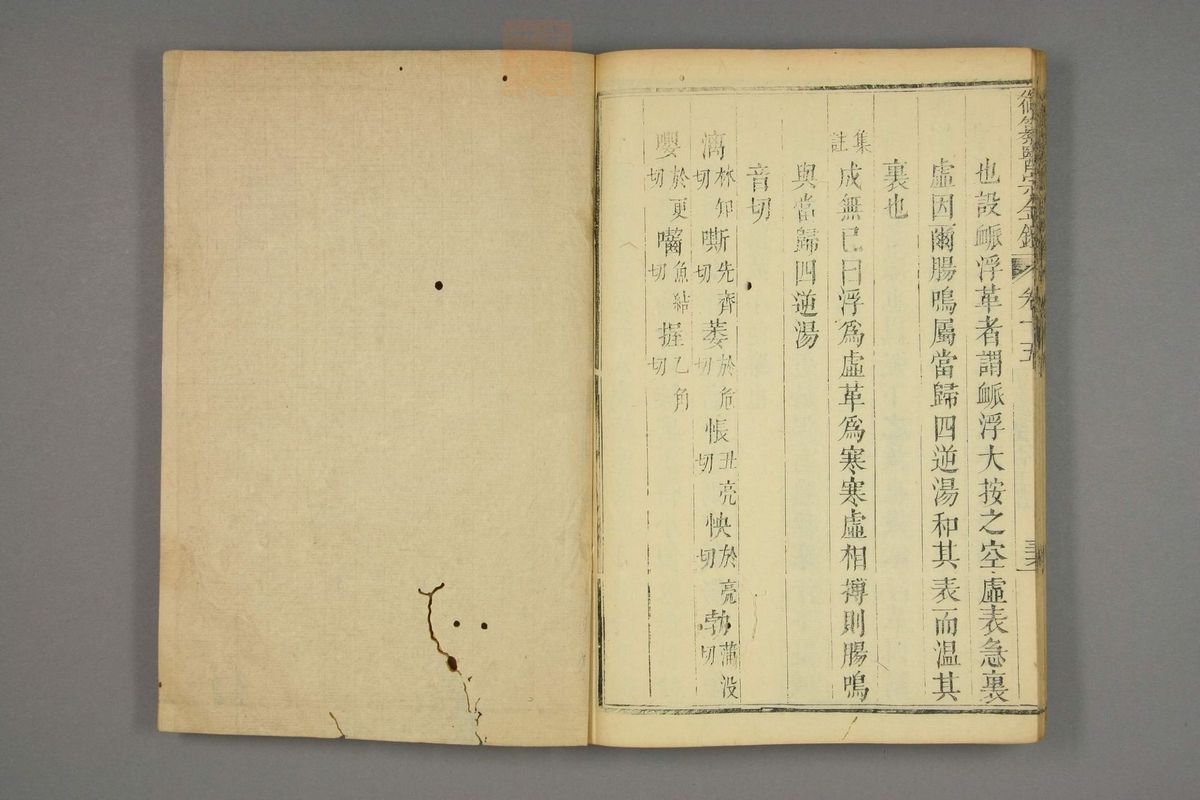 也設衇浮革者謂衇浮大按之空虛表急裏
虛因爾腸鳴屬當歸四逆湯和其表而溫其
裏也
集註
成無已曰浮爲虛革爲寒寒虛相摶則腸鳴
與當歸四逆湯
音切
漓林知切 嘶先齊切 萎於危切 悵丑亮切 怏於亮切 勃蒲没切
嚶於更切 囓魚結切 握乙角切